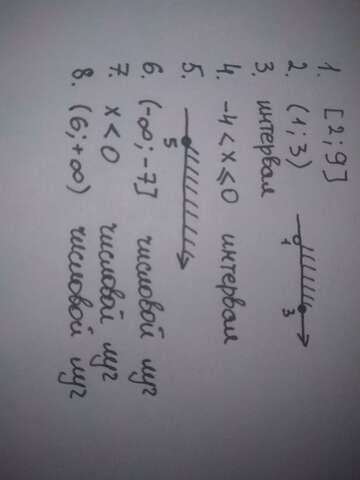 1. [2; 9]
2. (1; 3)
1 3
3. интервал
4. -4 < x ⩽ 0 интервал
5.
5
6. (-∞; -7] числовой луч
7. x < 0 числовой луч
8. (6; +∞) числовой луч